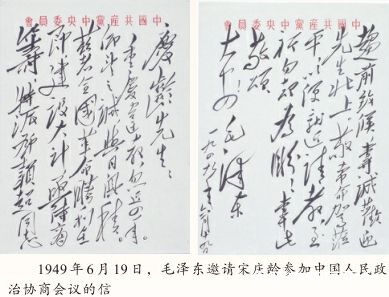 中國共產黨中央委員會
慶齡先生：
重慶違教忽近四年。
仰望之誠與日俱積。
茲者全國革命勝利在
即建設大計亟待商
籌特派鄧穎超同志
中國共產黨中央委員會
趨前致候專誠歡迎
先生北上敬希命駕蒞
平以便就近請教至
祈勿却為盼專此
敬頌
大安！
毛澤東
一九四九年六月十九日
1949年6月19日，毛泽东邀请宋庆龄参加中国人民政
治协商会议的信